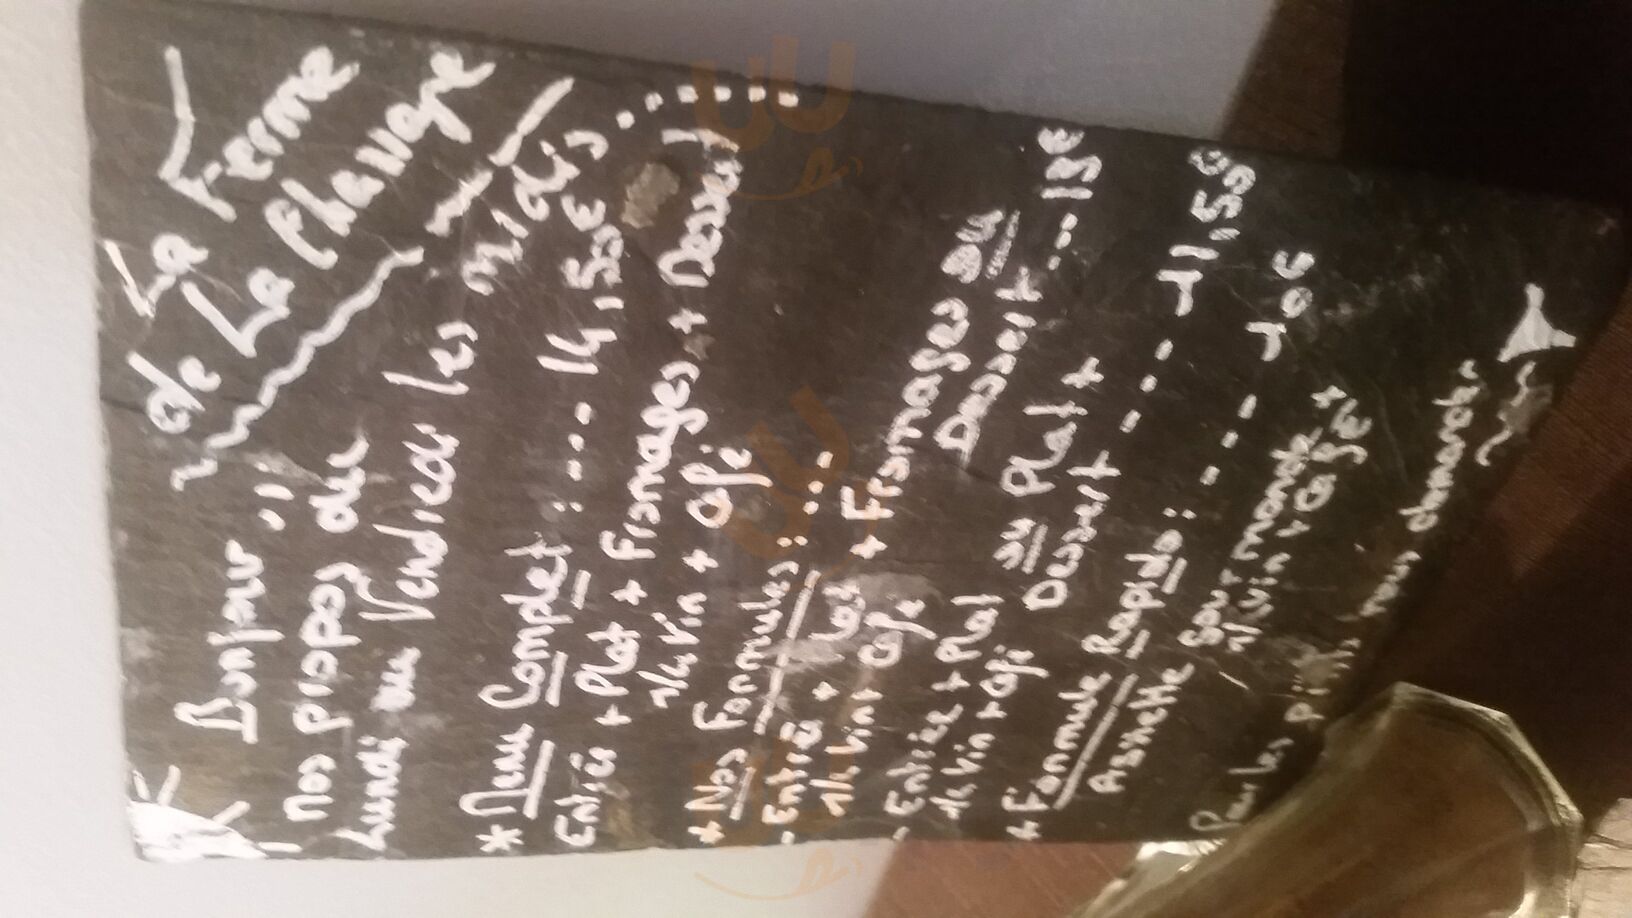 La Ferme
de La Phanage
Bonjour !!
nos propos du
Lundi au Vendredi les midis
* Menu Complet : --- 14,50€
Entrée + Plat + Fromages + Dessert
+ 1/4 vin + Café
+ Nos Formules : ---
- Entrée + Plat + Fromages ou
1/4 vin + Café Dessert --- 13€
- Entrée + Plat ou Plat +
1/4 vin + Café Dessert --- 11,50€
+ Formule Rapide : --- 10€
Assiette Gourmande +
1/4 vin + Café
Pour les p'tits nous demander